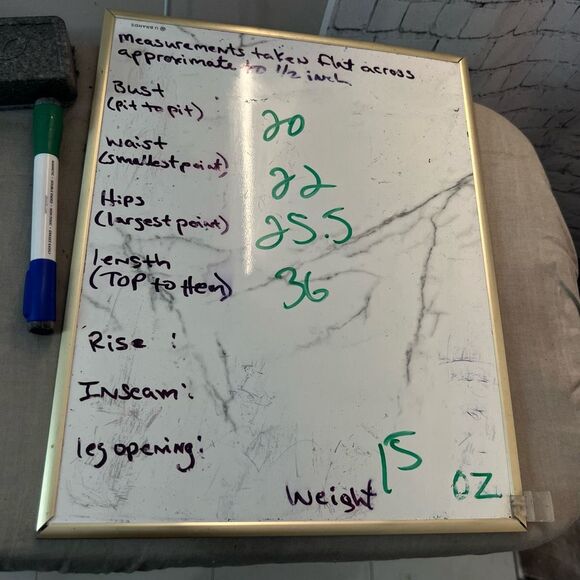 U BRANDS
measurements taken flat across
approximate to 1/2 inch
Bust
(pit to pit) 20
waist
(smallest point) 22
Hips
(largest point) 25.5
length
(TOP to Hem) 36
Rise :
Inseam:
leg opening:
Weight 15 oz